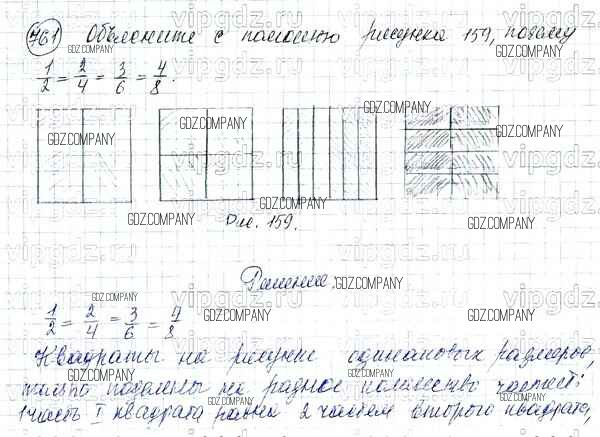 761 Объясните с помощью рисунка 159, почему
1/2 = 2/4 = 3/6 = 4/8.
Рис. 159.
Решение.
1/2 = 2/4 = 3/6 = 4/8
Квадраты на рисунке одинаковых размеров,
только поделены на разное количество частей:
1 часть I квадрата равна 2 частям второго квадрата,
GDZ.COMPANY
vipgdz.ru